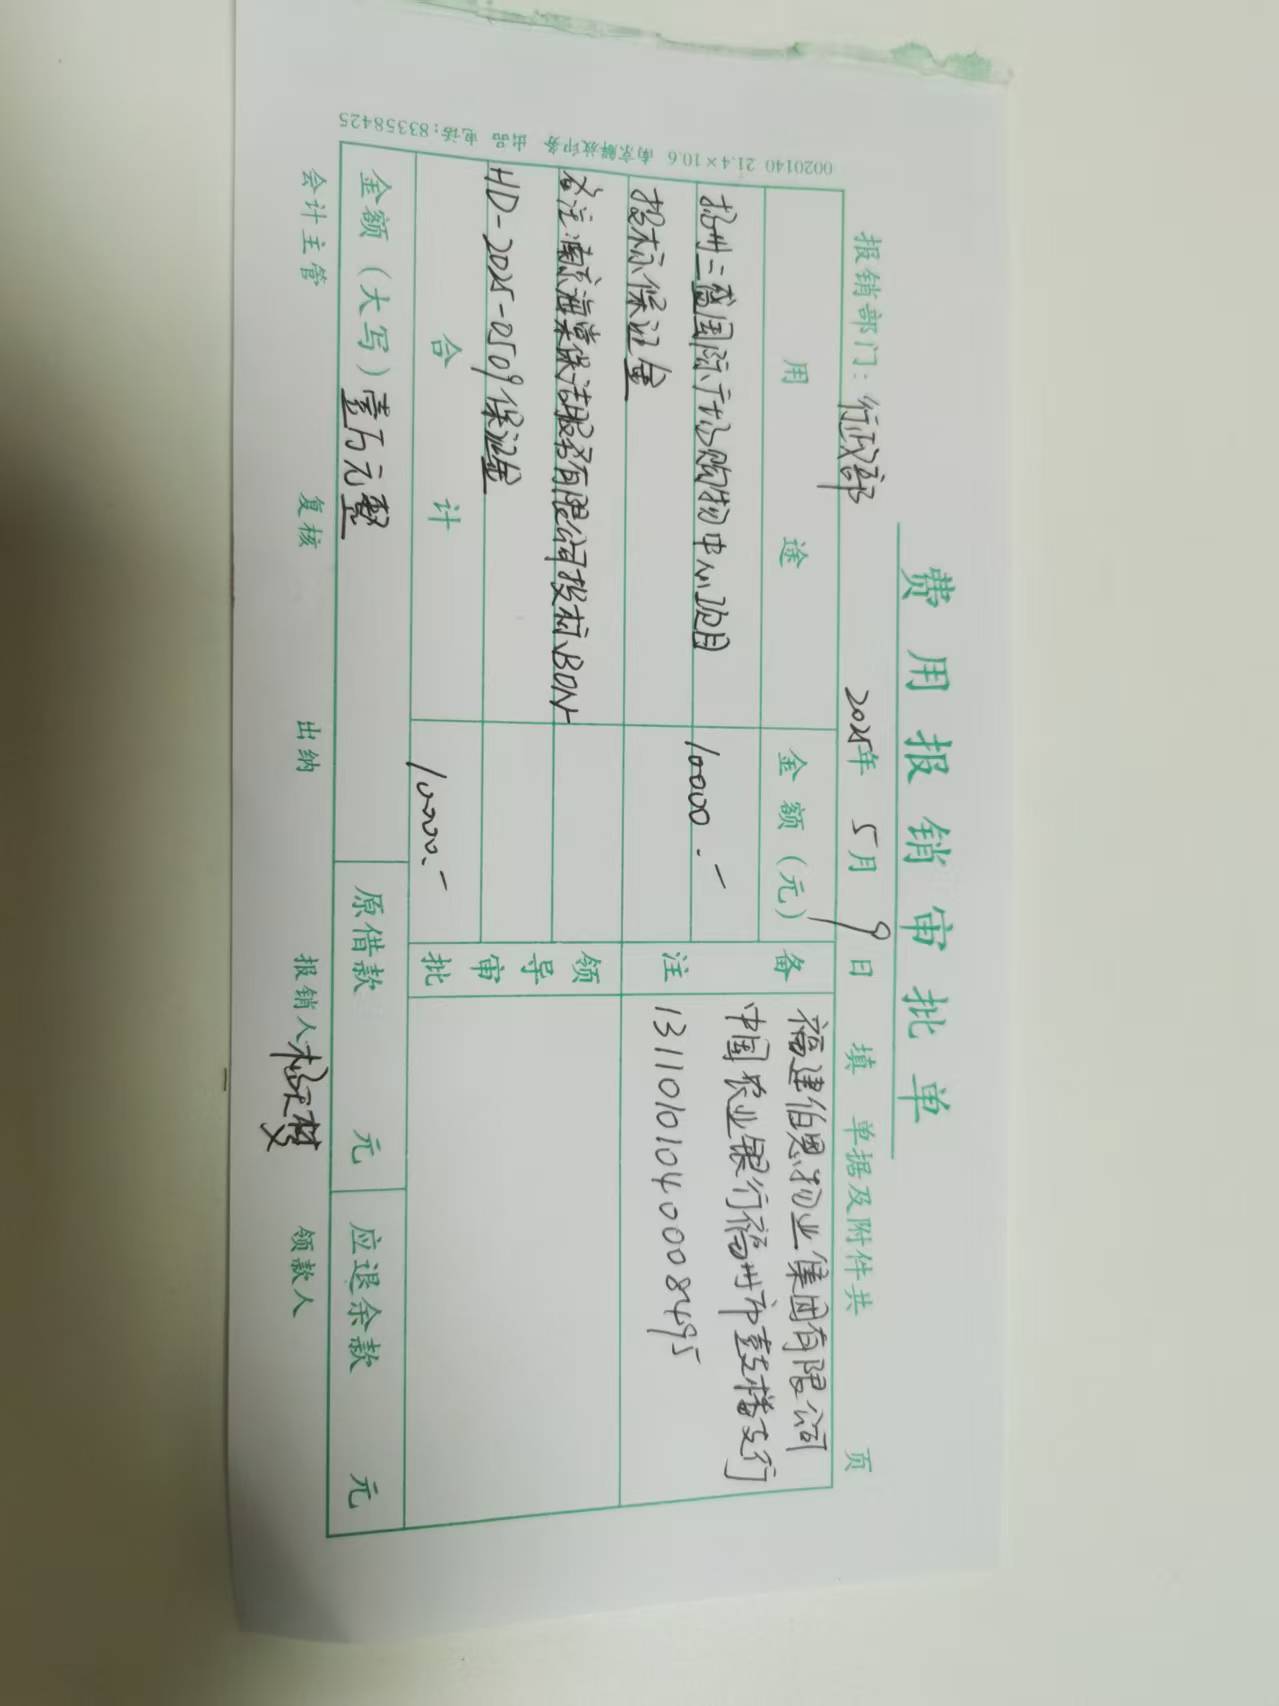 费用报销审批单
报销部门：行政部 2025年 5月 9日 填 单据及附件共 页
用途 金额（元） 备注
扬州三盛国际广场购物中心项目 10000.-
投标保证金
备注：南京海棠保洁服务有限公司投标BON
HD-2025-0509保证金
福建伯恩物业集团有限公司
中国农业银行福州市鼓楼支行
13110101040008495
领导审批
合计 10000.-
金额（大写）壹万元整 原借款 元 应退余款 元
会计主管 复核 出纳 报销人 领款人
0020140 21.4×10.6 南京解放印务 出品 电话：83358425